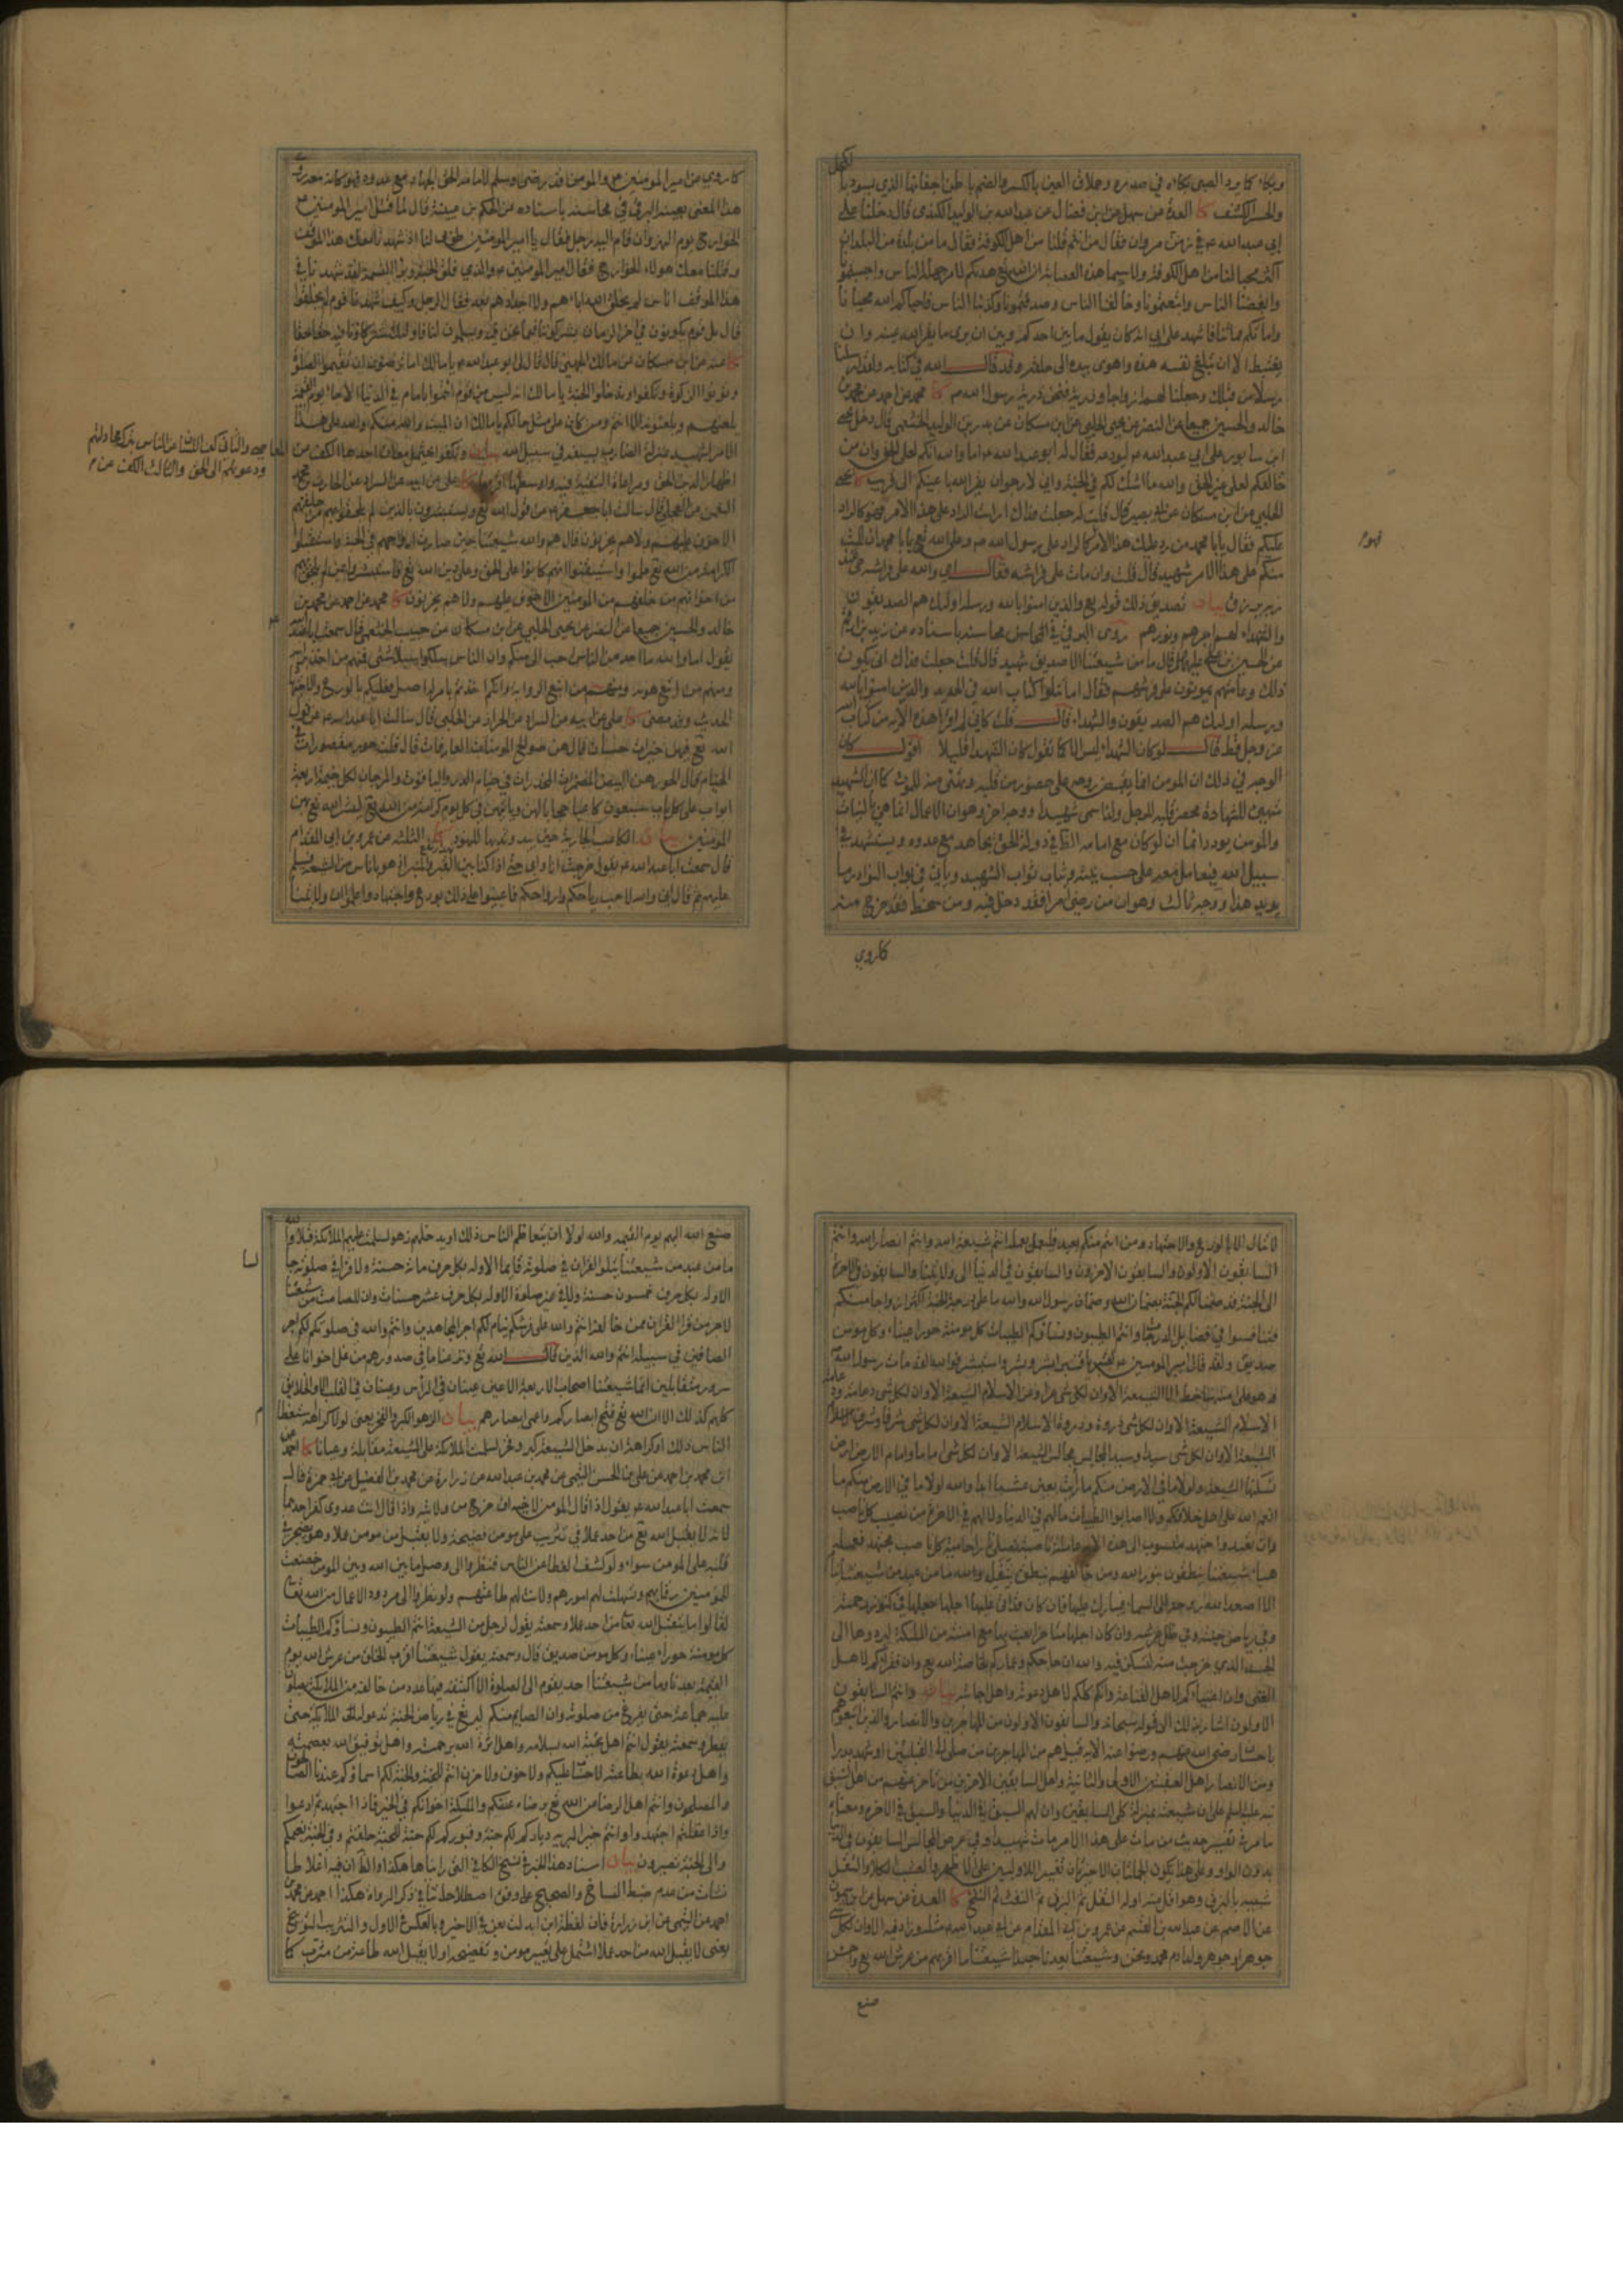 وبكاء كما يرد الصبى بكاءه في صدره وحملاق العين بالكسر والضم باطن اجفانها الذي يسود با
لكحل
والحسر الكشف كا العدة عن سهل عن ابن فضال عن عبد الله بن الوليد الكندى قال دخلنا على
ابي عبد الله ع في زمن مروان فقال من انتم قلنا من اهل الكوفة فقال ما من بلدة من البلدان
اكثر محبا لنا من اهل الكوفة ولا سيما هذه العصابة ان الله تع هداكم لامر جهله الناس واحببتمونا
وابغضنا الناس واتبعتمونا وخالفنا الناس وصدقتمونا وكذبنا الناس فاحياكم الله محيانا
واماتكم مماتنا فاشهد على ابي انه كان يقول ما بين احدكم وبين ان يرى ما يقر الله عينه وان
يغتبط الا ان تبلغ نفسه هذه واهوى بيده الى حلقه وقد قال الله في كتابه ولقد ارسلنا
رسلا من قبلك وجعلنا لهم ازواجا وذرية فنحن ذرية رسول الله ص كا محمد عن احمد عن محمد بن
خالد والحسين جميعا عن النضر عن يحيى الحلبي عن ابن مسكان عن بدر بن الوليد الخثعمى قال دخل يحيى
ابن سابور على ابي عبد الله ع ليودعه فقال له ابو عبد الله ع اما والله انكم لعلى الحق وان من
خالفكم لعلى غير الحق والله ما اشك لكم في الجنة واني لارجو ان يقر الله باعينكم الى قريب كا يحيى
الحلبي عن ابن مسكان عن ابي بصير قال قلت له جعلت فداك ارايت الراد على هذا الامر فهو كالراد
عليكم فقال يا با محمد من رد عليك هذا الامر كالراد على رسول الله ص وعلى الله تع يا با محمد ان الميت
فهو
منكم على هذا الامر شهيد قال قلت وان مات على فراشه فقال اي والله على فراشه حي عند
ربه يرزق بيان تصديق ذلك قوله تع والذين امنوا بالله ورسله اولئك هم الصديقون
والشهداء لهم اجرهم ونورهم روى البرقي في المحاسن باسناده عن زيد بن ارقم
عن الحسين بن علي عليهما قال ما من شيعتنا الا صديق شهيد قال قلت جعلت فداك انى يكون
ذلك وعامتهم يموتون على فرشهم فقال اما تتلوا كتاب الله في الحديد والذين امنوا بالله
ورسله اولئك هم الصديقون والشهداء قال قلت كاني لم اقرا هذه الاية من كتاب الله
عز وجل قط قال لو كان الشهداء ليس الا كما تقول كان الشهداء قليلا اقول كان
الوجه في ذلك ان المومن انما يقبض روحه على حضور من قلبه وتمنى منه للموت كما ان الشهيد
متهيئ للشهادة محضر قلبه للرحيل ولذا سمى شهيدا ووجه اخر وهو ان الاعمال انما هي بالنيات
والمومن يود دائما ان لو كان مع امامه الظاهر في دولة الحق يجاهد مع عدوه ويستشهد في
سبيل الله فيعامل معه على حسب نيته ويثاب ثواب الشهيد وياتى في ابواب النوادر ما
يويد هذا ووجه ثالث وهو ان من رضى امرا فقد دخل فيه ومن سخط فقد خرج منه
كما روي
كما روي عن امير المومنين ع والمومن قد رضى وسلم لامامه الحق الجهاد مع عدوه فهو كانه معه وفى
هذا المعنى بعينه البرقى في محاسنه باسناده عن الحكم بن عيينة قال لما قتل امير المومنين ع
الخوارج يوم النهروان قام اليه رجل فقال يا امير المومنين طوبى لنا اذ شهدنا معك هذا الموقف
وقتلنا معك هولاء الخوارج فقال امير المومنين ع والذي فلق الحبة وبرا النسمة لقد شهدنا في
هذا الموقف اناس لم يخلق الله اباءهم ولا اجدادهم بعد فقال الرجل وكيف شهدنا قوم لم يخلقوا
قال بل قوم يكونون في اخر الزمان يشركوننا فيما نحن فيه ويسلمون لنا فاولئك شركاؤنا فيه حقا حقا
كا عنه عن ابن مسكان عن مالك الجهنى قال قال لى ابو عبد الله ع يا مالك اما ترضون ان تقيموا الصلوة
وتؤتوا الزكوة وتكفوا وتدخلوا الجنة يا مالك انه ليس من قوم ائتموا بامام في الدنيا الا جاء يوم القيمة
يلعنهم ويلعنونه الا انتم ومن كان على مثل حالكم يا مالك ان الميت والله منكم على هذا
الامر لشهيد بمنزلة الضارب بسيفه في سبيل الله بيان وتكفوا يحتمل معان احدها الكف عن
المعاصى والثانى كف اللسان عن الناس بترك مجادلتهم
ودعوتهم الى الحق والثالث الكف عن م
اظهار الدين الحق ومراعاة التقية فيه واوسطها اقربها كا على عن ابيه عن السراد عن الحارث بن محمد بن
النعمن عن العجلى قال سالت ابا جعفر ع عن قول الله تع ويستبشرون بالذين لم يلحقوا بهم من خلفهم
الا خوف عليهم ولا هم يحزنون قال هم والله شيعتنا حين صارت ارواحهم في الجنة واستقبلوا
الكرامة من الله تع علموا واستيقنوا انهم كانوا على الحق وعلى دين الله تع فاستبشروا بمن لم يلحق بهم
من اخوانهم من خلفهم من المومنين الا خوف عليهم ولا هم يحزنون كا محمد عن احمد عن محمد بن
خالد والحسين جميعا عن النضر عن يحيى الحلبي عن ابن مسكان عن حبيب الخثعمى قال سمعت ابا عبد الله ع
يقول اما والله ما احد من الناس احب الى منكم وان الناس سلكوا سبلا شتى فمنهم من اخذ برايه
ومنهم من اتبع هواه ومنهم من اتبع الرواية وانكم اخذتم بامر له اصل فعليكم بالورع والاجتهاد
الحديث وقد مضى كا على عن ابيه عن السراد عن الخراز عن الحلبى قال سالت ابا عبد الله ع عن قول
الله تع فيهن خيرات حسان قال هن صوالح المومنات العارفات قال قلت حور مقصورات في
الخيام قال الحور هن البيض المضمرات المخدرات في خيام الدر والياقوت والمرجان لكل خيمة اربعة
ابواب على كل باب سبعون كاعبا حجابا لهن وياتيهن في كل يوم كرامة من الله تع ليبشر الله تع بهن
المومنين بيان الكاعب الجارية حين يبدو ثديها للنهود كا الثلثة عن عمرو بن ابي المقدام
قال سمعت ابا عبد الله ع يقول خرجت انا وابي حتى اذا كنا بين القبر والمنبر اذا هو باناس من الشيعة فسلم
عليهم ثم قال انى والله لاحب رياحكم وارواحكم فاعينوا على ذلك بورع واجتهاد واعلموا ان ولايتنا
لا تنال الا بالورع والاجتهاد ومن ائتم منكم بعبد فليعمل بعمله انتم شيعة الله وانتم انصار الله وانتم
السابقون الاولون والسابقون الاخرون والسابقون في الدنيا الى ولايتنا والسابقون في الاخرة
الى الجنة قد ضمنا لكم الجنة بضمان الله وضمان رسول الله والله ما على درجة الجنة اكثر ارواحا منكم
فتنافسوا في فضايل الدرجات وانتم الطيبون ونساؤكم الطيبات كل مومنة حوراء عيناء وكل مومن
صديق ولقد قال امير المومنين ع لقنبر يا قنبر ابشر وبشر واستبشر فوالله لقد مات رسول الله ص
وهو على امته ساخط الا الشيعة الا وان لكل شى عزا وعز الاسلام الشيعة الا وان لكل شى دعامة ود
عامة
الاسلام الشيعة الا وان لكل شى ذروة وذروة الاسلام الشيعة الا وان لكل شى شرفا وشرف الاسلام
الشيعة الا وان لكل شى سيدا وسيد المجالس مجالس الشيعة الا وان لكل شى اماما وامام الارض ارض
تسكنها الشيعة والله لولا ما في الارض منكم ما رايت بعين عشبا ابدا والله لولا ما في الارض منكم ما
انعم الله على اهل خلافكم ولا اصابوا الطيبات ما لهم في الدنيا ولا لهم في الاخرة من نصيب كل ناصب
وان تعبد واجتهد منسوب الى هذه الاية عاملة ناصبة تصلى نارا حامية كل ناصب مجتهد فعمله
هباء شيعتنا ينطقون بنور الله ومن خالفهم ينطق بتفلت والله ما من عبد من شيعتنا ينام
الا اصعد الله روحه الى السماء فيبارك عليها فان كان قد اتى عليها اجلها جعلها في كنوز رحمته
وفي رياض جنته وفي ظل عرشه وان كان اجلها متاخرا بعث بها مع امنته من الملئكة ليردوها الى
الجسد الذي خرجت منه لتسكن فيه والله ان حاجكم وعماركم لخاصة الله تع وان فقراءكم لاهل
الغنى وان اغنياءكم لاهل القناعة وانكم كلكم لاهل دعوته واهل اجابته بيان وانتم السابقون
الاولون اشارة بذلك الى قوله سبحانه والسابقون الاولون من المهاجرين والانصار والذين اتبعوهم
باحسان رضى الله عنهم ورضوا عنه الاية قيل هم من المهاجرين من صلى الى القبلتين او شهد بدرا
ومن الانصار اهل العقبتين الاولى والثانية واهل السابقين الاخرين من تاخر عنهم من اهل السبق
نبه عليه السلم على ان شيعته بمنزلة كلى السابقين وان لهم السبق في الدنيا والسبق في الاخرة ومعناه
ما مر في تفسير حديث من مات على هذا الامر مات شهيدا وفي عرض المجالس السابقون في الدنيا
بدون الواو وعلى هذا يكون الجملتان الاخيرتان تفسير الاوليين
شبيه بالبزق وهو اقل منه اوله التفل ثم البزق ثم النفث ثم النفخ كا العدة عن سهل عن ابن شمون
عن الاصم عن عبد الله بن القسم عن عمرو بن ابي المقدام عن ابي عبد الله ع مثله وزاد فيه الا وان لكل شى
جوهرا وجوهر ولد ادم محمد ونحن وشيعتنا بعدنا حبذا شيعتنا ما اقربهم من عرش الله تع واحسن
صنع
صنع الله اليهم يوم القيمة والله لولا ان يتعاظم الناس ذلك او يدخلهم زهو لسلمت عليهم الملائكة قبلا والله
ما من عبد من شيعتنا يتلوا القران في صلوته قائما الا وله بكل حرف مائة حسنة ولا قرا في صلوته جا
لسا
الا وله بكل حرف خمسون حسنة ولا في غير صلوة الا وله بكل حرف عشر حسنات وان للصامت من شيعتنا
لاجر من قرا القران ممن خالفه انتم والله على فرشكم نيام لكم اجر المجاهدين وانتم والله في صلوتكم لكم اجر
الصافين في سبيله انتم والله الذين قال الله تع ونزعنا ما في صدورهم من غل اخوانا على
سرر متقابلين انما شيعتنا اصحاب الاربعة الاعين عينان في الراس وعينان في القلب الا والخلايق
كلهم كذلك الا ان الله تع فتح ابصاركم واعمى ابصارهم بيان الزهو الكبر والفخر يعنى لولا كراهة استعظام
الناس ذلك او كراهة ان يدخل الشيعة كبر وفخر لسلمت الملائكة على الشيعة مقابلة وعيانا كا احمد عن
ابن محمد بن احمد عن على بن الحسن التيمى عن محمد بن عبد الله عن زرارة عن محمد بن الفضيل عن ابي حمزة قال
سمعت ابا عبد الله ع يقول اذا قال المومن لاخيه اف خرج من ولايته واذا قال انت عدوى كفر احدهما
لانه لا يقبل الله تع من احد عملا في تثريب على مومن فضيحة ولا يقبل من مومن عملا وهو يضمر في
قلبه على المومن سوءا ولو كشف الغطا عن الناس فنظروا الى وصل ما بين الله وبين المومن خضعت
للمؤمنين رقابهم وتسهلت لهم امورهم ولانت لهم طاعتهم ولو نظروا الى مردود الاعمال من الله تعا
لقالوا ما يتقبل الله تعا من احد عملا وسمعته يقول لرجل من الشيعة انتم الطيبون ونساؤكم الطيبات
كل مومنة حوراء عيناء وكل مومن صديق قال وسمعته يقول شيعتنا اقرب الخلق من عرش الله يوم
القيمة بعدنا وما من شيعتنا احد يقوم الى الصلوة الا اكتنفته فيها عدد من خالفه من الملائكة يصلون
عليه جماعة حتى يفرغ من صلوته وان الصايم منكم ليرتع في رياض الجنة تدعو له الملائكة حتى
يفطر وسمعته يقول انتم اهل تحية الله بسلامه واهل اثرة الله برحمته واهل توفيق الله بعصمته
واهل دعوة الله بطاعته لا حساب عليكم ولا خوف ولا حزن انتم للجنة والجنة لكم اسماؤكم عندنا الصالحون
والمصلحون وانتم اهل الرضا عن الله تع برضاه عنكم والملئكة اخوانكم في الخير فاذا اجتهدتم ادعوا
واذا غفلتم اجتهدوا وانتم خير البرية دياركم لكم جنة وقبوركم لكم جنة للجنة خلقتم وفي الجنة نعيمكم
والى الجنة تصيرون بيان اسناد هذا الخبر في نسخ الكافى التي راينا ها هكذا والظ ان فيه اغلاطا
نشات من عدم ضبط النساخ والصحيح على وفق اصطلاحاتنا في ذكر الرواة هكذا احمد عن محمد بن
احمد عن التيمى عن ابن زرارة فان لفظة ابن ابدلت بعن في الاخير وبالعكس في الاول والتثريب التوبيخ
يعنى لا يقبل الله من احد عملا اشتمل على تعيير مومن وتفضيحه او لا يقبل الله طاعة من مثرب كا